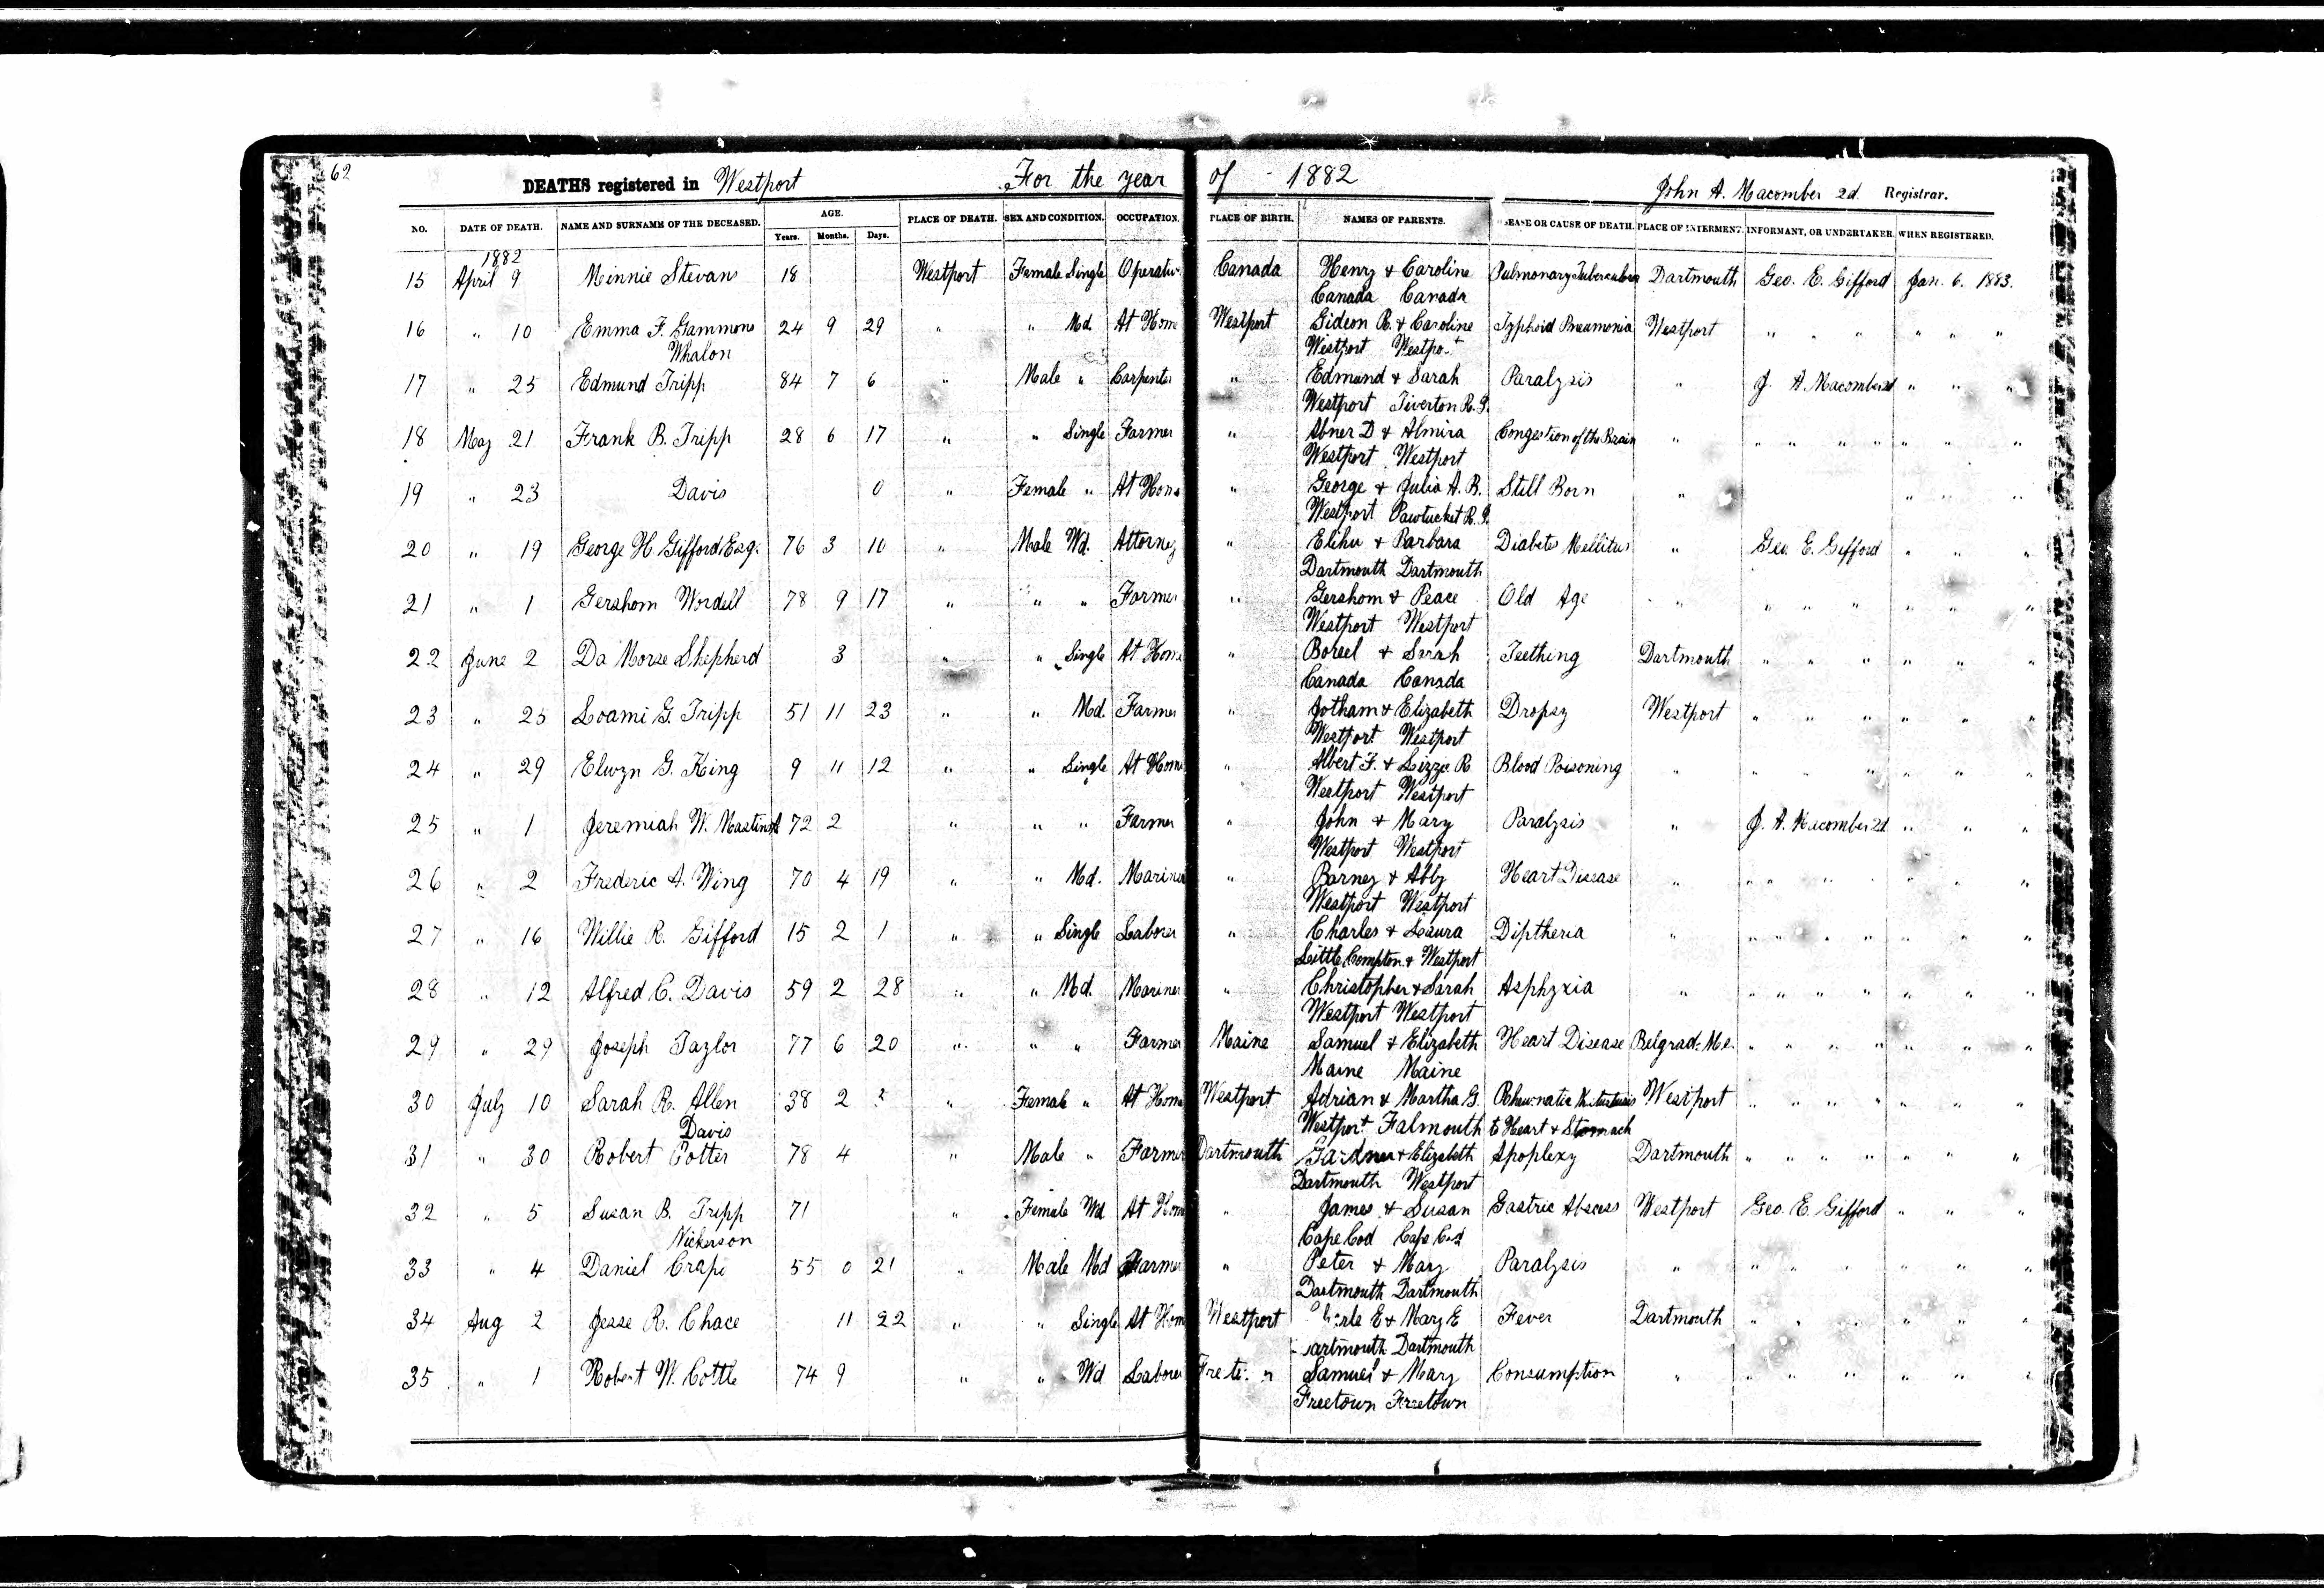 62
DEATHS registered in Westport For the year of 1882 John A. Macomber 2d Registrar.
NO. DATE OF DEATH. NAME AND SURNAME OF THE DECEASED. AGE. PLACE OF DEATH. SEX AND CONDITION. OCCUPATION. PLACE OF BIRTH. NAMES OF PARENTS. CAUSE OF DEATH. PLACE OF INTERMENT. INFORMANT, OR UNDERTAKER. WHEN REGISTERED.
Years. Months. Days.
1882
15 April 9 Minnie Stevans 18 Westport Female Single Operativ Canada Henry & Caroline Pulmonary Tuberculosis Dartmouth Geo. E. Gifford Jan. 6. 1883.
Canada Canada
16 " 10 Emma F. Gammons 24 9 29 " " Md. At Home Westport Gideon R. & Caroline Typhoid Pneumonia Westport " " " " " "
Whalon Westport Westport
17 " 25 Edmund Tripp 84 7 6 " Male " Carpenter " Edmund & Sarah Paralysis " J. A. Macomber 2d " " "
Westport Tiverton R.I.
18 May 21 Frank B. Tripp 28 6 17 " " Single Farmer " Abner D & Almira Congestion of the Brain " " " " " " " "
Westport Westport
19 " 23 Davis 0 " Female " At Home " George & Julia A. B. Still Born " " " "
Westport Pawtucket R.I.
20 " 19 George H. Gifford Esq. 76 3 10 " Male Wd. Attorney " Elihu & Barbara Diabetes Mellitus " Geo. E. Gifford " " "
Dartmouth Dartmouth
21 " 1 Gershom Wordell 78 9 17 " " " Farmer " Gershom & Peace Old Age " " " " " " "
Westport Westport
22 June 2 Da Morse Shepherd 3 " " Single At Home " & Sarah Teething Dartmouth " " " " " "
Canada Canada
23 " 25 Loami G. Tripp 51 11 23 " " Md. Farmer " Jotham & Elizabeth Dropsy Westport " " " " " "
Westport Westport
24 " 29 Elwyn G. King 9 11 12 " " Single At Home " Albert F. & Lizzie R Blood Poisoning " " " " " " "
Westport Westport
25 " 1 Jeremiah W. 72 2 " " " Farmer " John & Mary Paralysis " J. A. Macomber 2d " " "
Westport Westport
26 " 2 Frederic A. Wing 70 4 19 " " Md. Mariner " Barney & Abby Heart Disease " " " " " " " "
Westport Westport
27 " 16 Willie R. Gifford 15 2 1 " " Single Laborer " Charles & Laura Diptheria " " " " " " " "
Little Compton & Westport
28 " 12 Alfred C. Davis 59 2 28 " " Md. Mariner " Christopher & Sarah Asphyxia " " " " " " " "
Westport Westport
29 " 29 Joseph Taylor 77 6 20 " " " Farmer Maine Samuel & Elizabeth Heart Disease Belgrad. Me. " " " " " " "
Maine Maine
30 July 10 Sarah R. Allen 38 2 " Female " At Home Westport Adrian & Martha G. Rheumatic Westport " " " " " " "
Davis Westport Falmouth to Heart & Stomach
31 " 30 Robert Potter 78 4 " Male " Farmer Dartmouth Gardner & Elizabeth Apoplexy Dartmouth " " " " " " "
Dartmouth Westport
32 " 5 Susan B. Tripp 71 " Female Wd At Home " James & Susan Gastric Abscess Westport Geo. E. Gifford " " "
Nickerson Cape Cod Cape Cod
33 " 4 Daniel Crapo 55 0 21 " Male Md Farmer " Peter & Mary Paralysis " " " " " " " "
Dartmouth Dartmouth
34 Aug 2 Jesse R. Chace 11 22 " " Single At Home Westport E & Mary E Fever Dartmouth " " " " " " "
Dartmouth Dartmouth
35 " 1 Robert W. Cottle 74 9 " " Wd Laborer Samuel & Mary Consumption " " " " " " " "
Freetown Freetown